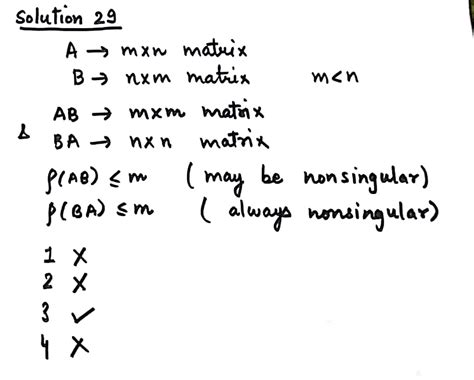 Solution 29
A → m×n matrix
B → n×m matrix m<n
AB → m×m matrix
& BA → n×n matrix
ρ(AB) ≤ m ( may be nonsingular)
ρ(BA) ≤ m ( always nonsingular)
1 ×
2 ×
3 ✓
4 ×